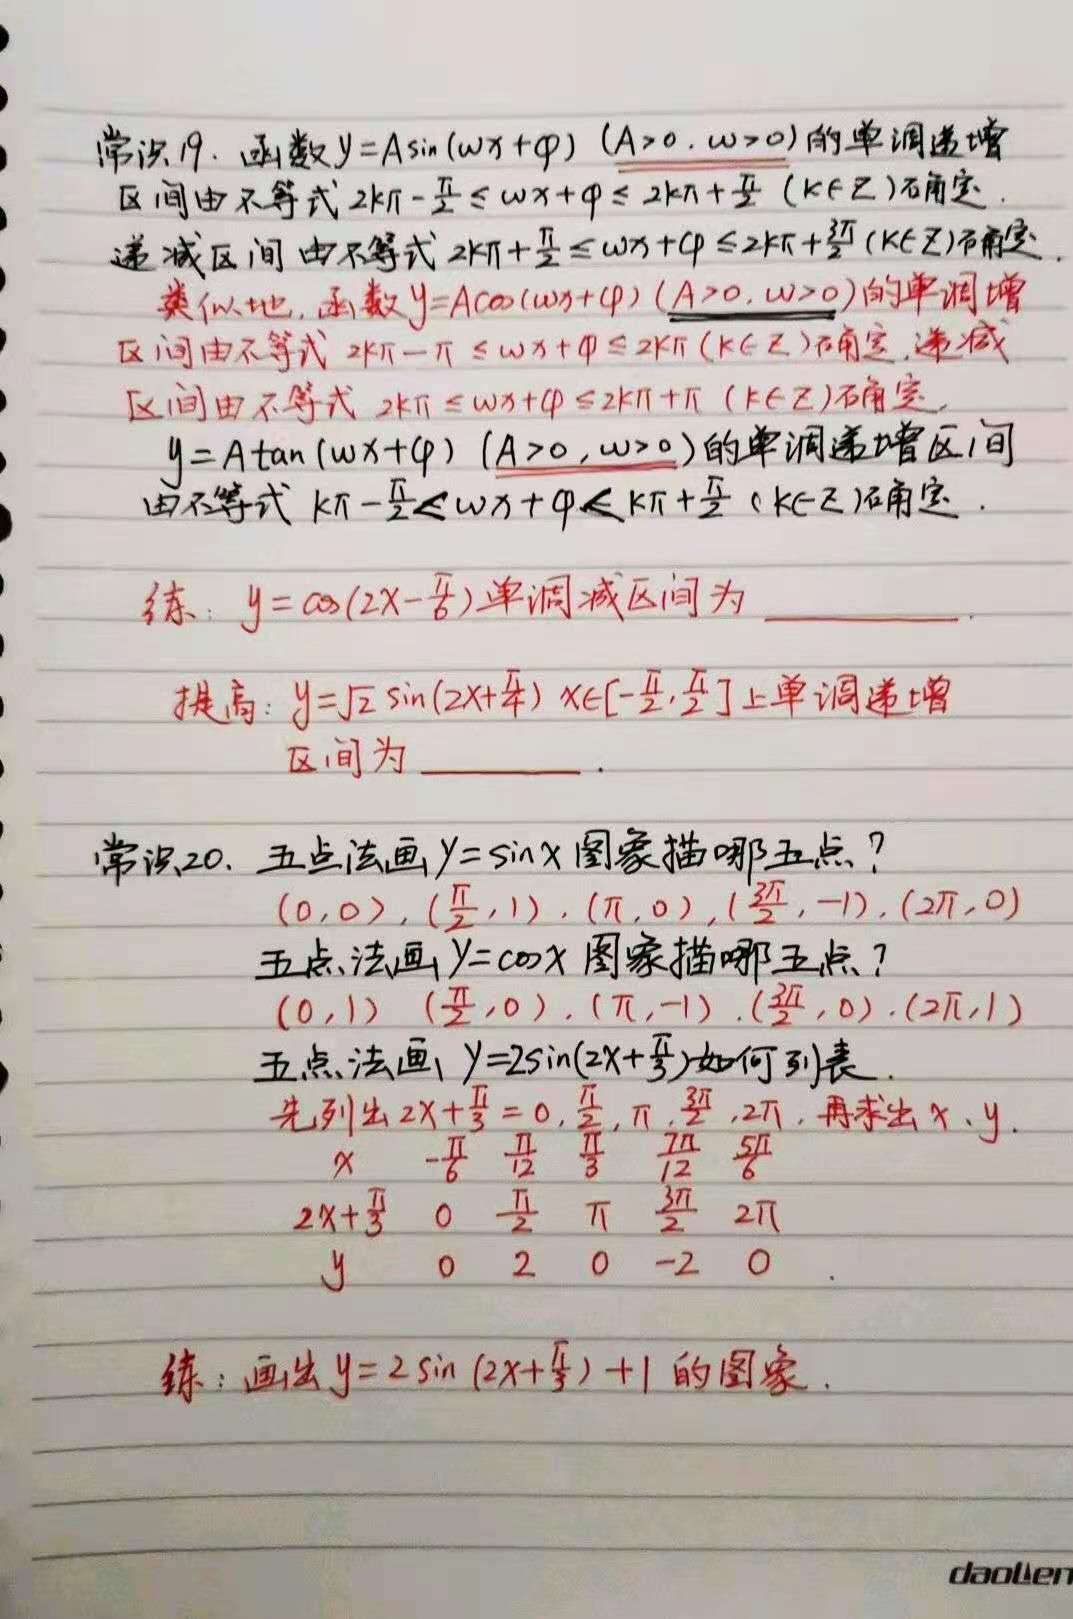 常识19. 函数y=Asin(ωx+φ) (A>0. ω>0)的单调递增
区间由不等式 2kπ-π/2≤ωx+φ≤2kπ+π/2 (k∈Z)确定.
递减区间由不等式 2kπ+π/2≤ωx+φ≤2kπ+3π/2 (k∈Z)确定.
类似地,函数y=Acos(ωx+φ) (A>0, ω>0)的单调增
区间由不等式 2kπ-π≤ωx+φ≤2kπ (k∈Z)确定,递减
区间由不等式 2kπ≤ωx+φ≤2kπ+π (k∈Z)确定,
y=Atan(ωx+φ) (A>0, ω>0)的单调递增区间
由不等式 kπ-π/2<ωx+φ<kπ+π/2 (k∈Z)确定.
练: y=cos(2x-π/6)单调减区间为________.
提高: y=√2 sin(2x+π/4) x∈[-π/2,π/2]上单调递增
区间为________.
常识20. 五点法画y=sinx图象描哪五点?
(0,0), (π/2,1), (π,0), (3π/2,-1), (2π,0)
五点法画y=cosx 图象描哪五点?
(0,1) (π/2,0). (π,-1). (3π/2,0). (2π,1)
五点法画 y=2sin(2x+π/3)如何列表.
先列出2x+π/3=0,π/2,π,3π/2,2π,再求出x、y.
x -π/6 π/12 π/3 7π/12 5π/6
2x+π/3 0 π/2 π 3π/2 2π
y 0 2 0 -2 0 .
练: 画出y=2sin(2x+π/3)+1的图象.